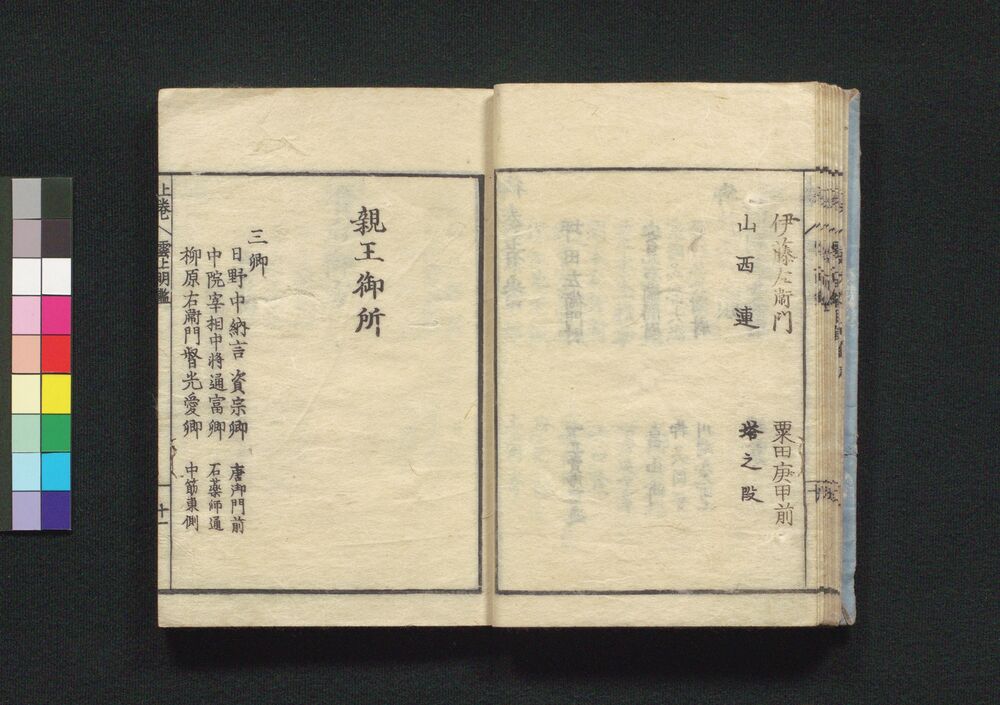 伊藤左衛門　粟田庚申前
山西連　塔之段
親王御所
三卿
日野中納言資宗卿　唐御門前
中院宰相中将通富卿　石薬師通
柳原右衛門督光愛卿　中筋東側
上巻　雲上明鑑　十一